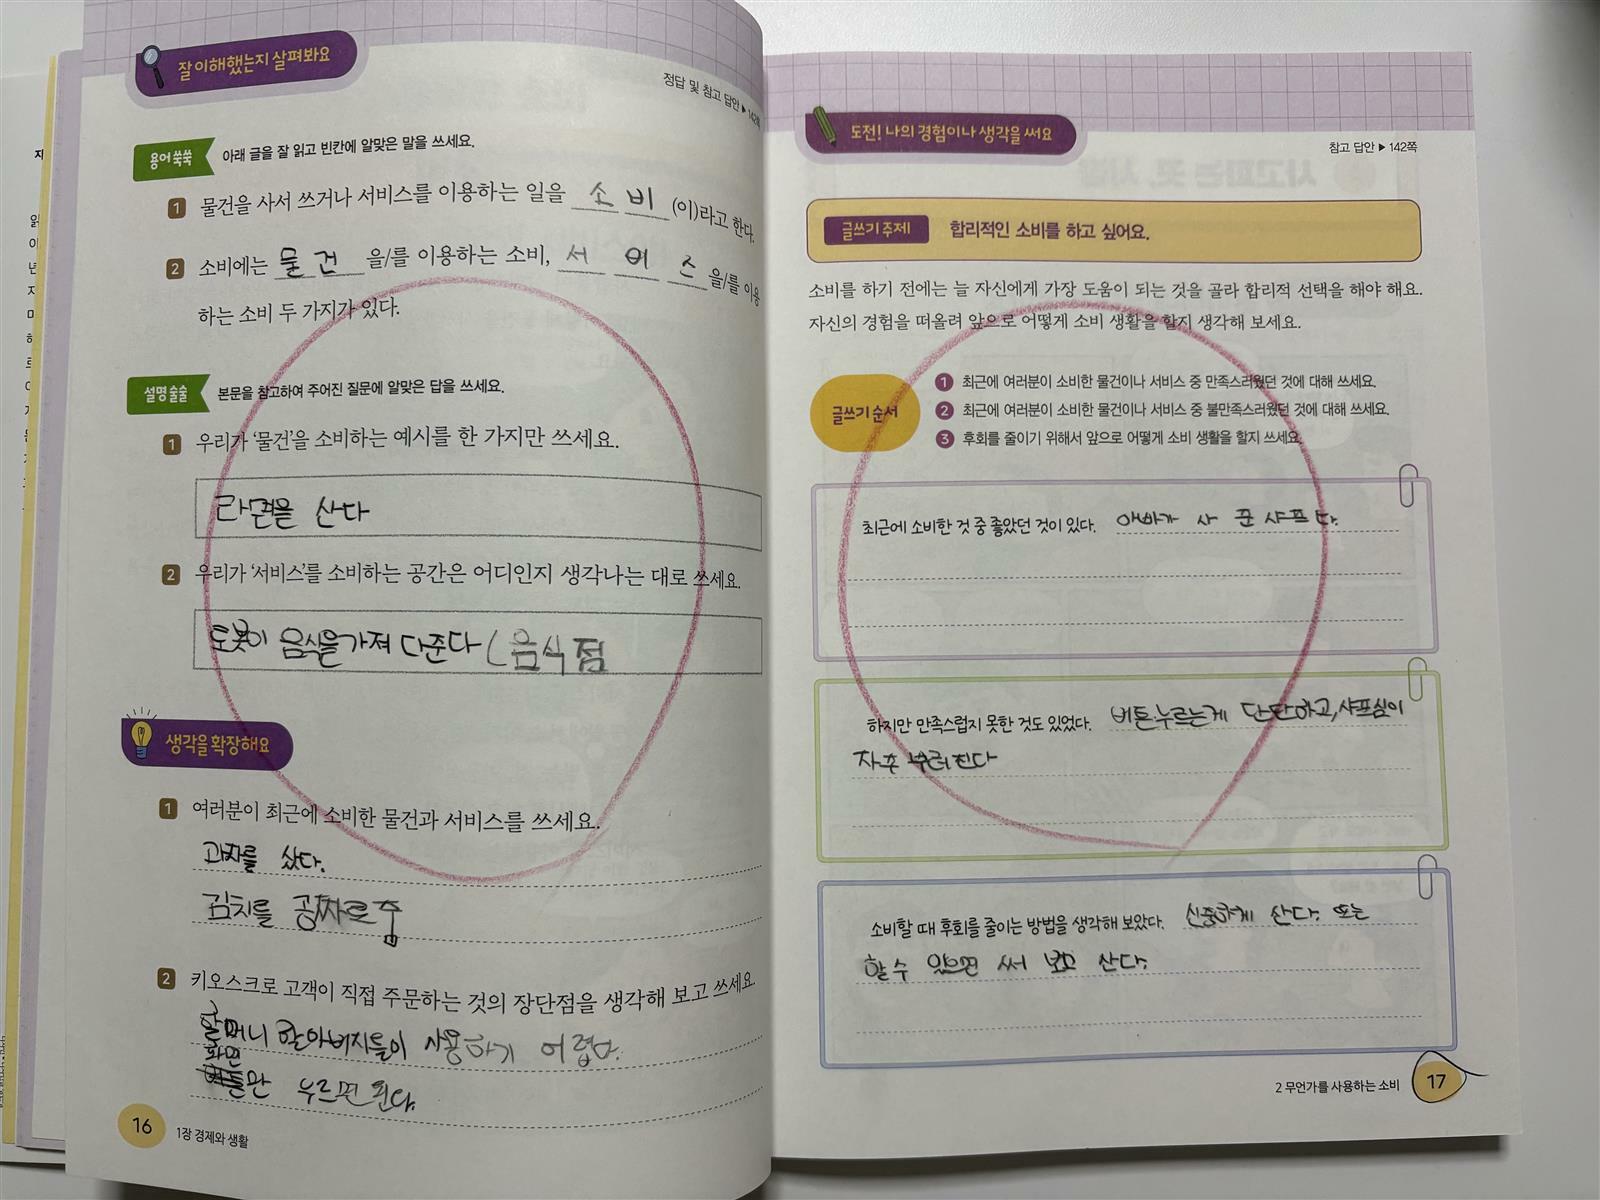 잘 이해했는지 살펴봐요
정답 및 참고 답안 ▶ 142쪽
용어 쑥쑥 아래 글을 잘 읽고 빈칸에 알맞은 말을 쓰세요.
1 물건을 사서 쓰거나 서비스를 이용하는 일을 소 비 (이)라고 한다.
2 소비에는 물 건 을/를 이용하는 소비, 서 비 스 을/를 이용
하는 소비 두 가지가 있다.
설명 술술 본문을 참고하여 주어진 질문에 알맞은 답을 쓰세요.
1 우리가 '물건'을 소비하는 예시를 한 가지만 쓰세요.
라면을 산다
2 우리가 '서비스'를 소비하는 공간은 어디인지 생각나는 대로 쓰세요.
로봇이 음식을 가져 다준다 (음식점
생각을 확장해요
1 여러분이 최근에 소비한 물건과 서비스를 쓰세요.
과자를 샀다.
김치를 공짜로 줌
2 키오스크로 고객이 직접 주문하는 것의 장단점을 생각해 보고 쓰세요.
할머니 할아버지들이 사용하기 어렵다.
화면
만 누르면 된다.
16 1장 경제와 생활
도전! 나의 경험이나 생각을 써요
참고 답안 ▶ 142쪽
글쓰기 주제 합리적인 소비를 하고 싶어요.
소비를 하기 전에는 늘 자신에게 가장 도움이 되는 것을 골라 합리적 선택을 해야 해요.
자신의 경험을 떠올려 앞으로 어떻게 소비 생활을 할지 생각해 보세요.
글쓰기 순서
1 최근에 여러분이 소비한 물건이나 서비스 중 만족스러웠던 것에 대해 쓰세요.
2 최근에 여러분이 소비한 물건이나 서비스 중 불만족스러웠던 것에 대해 쓰세요.
3 후회를 줄이기 위해서 앞으로 어떻게 소비 생활을 할지 쓰세요.
최근에 소비한 것 중 좋았던 것이 있다. 아빠가 사 준 샤프다.
하지만 만족스럽지 못한 것도 있었다. 버튼누르는게 단단하고, 샤프심이
자주 부러진다
소비할 때 후회를 줄이는 방법을 생각해 보았다. 신중하게 산다. 또는
할 수 있으면 써 보고 산다.
2 무언가를 사용하는 소비 17